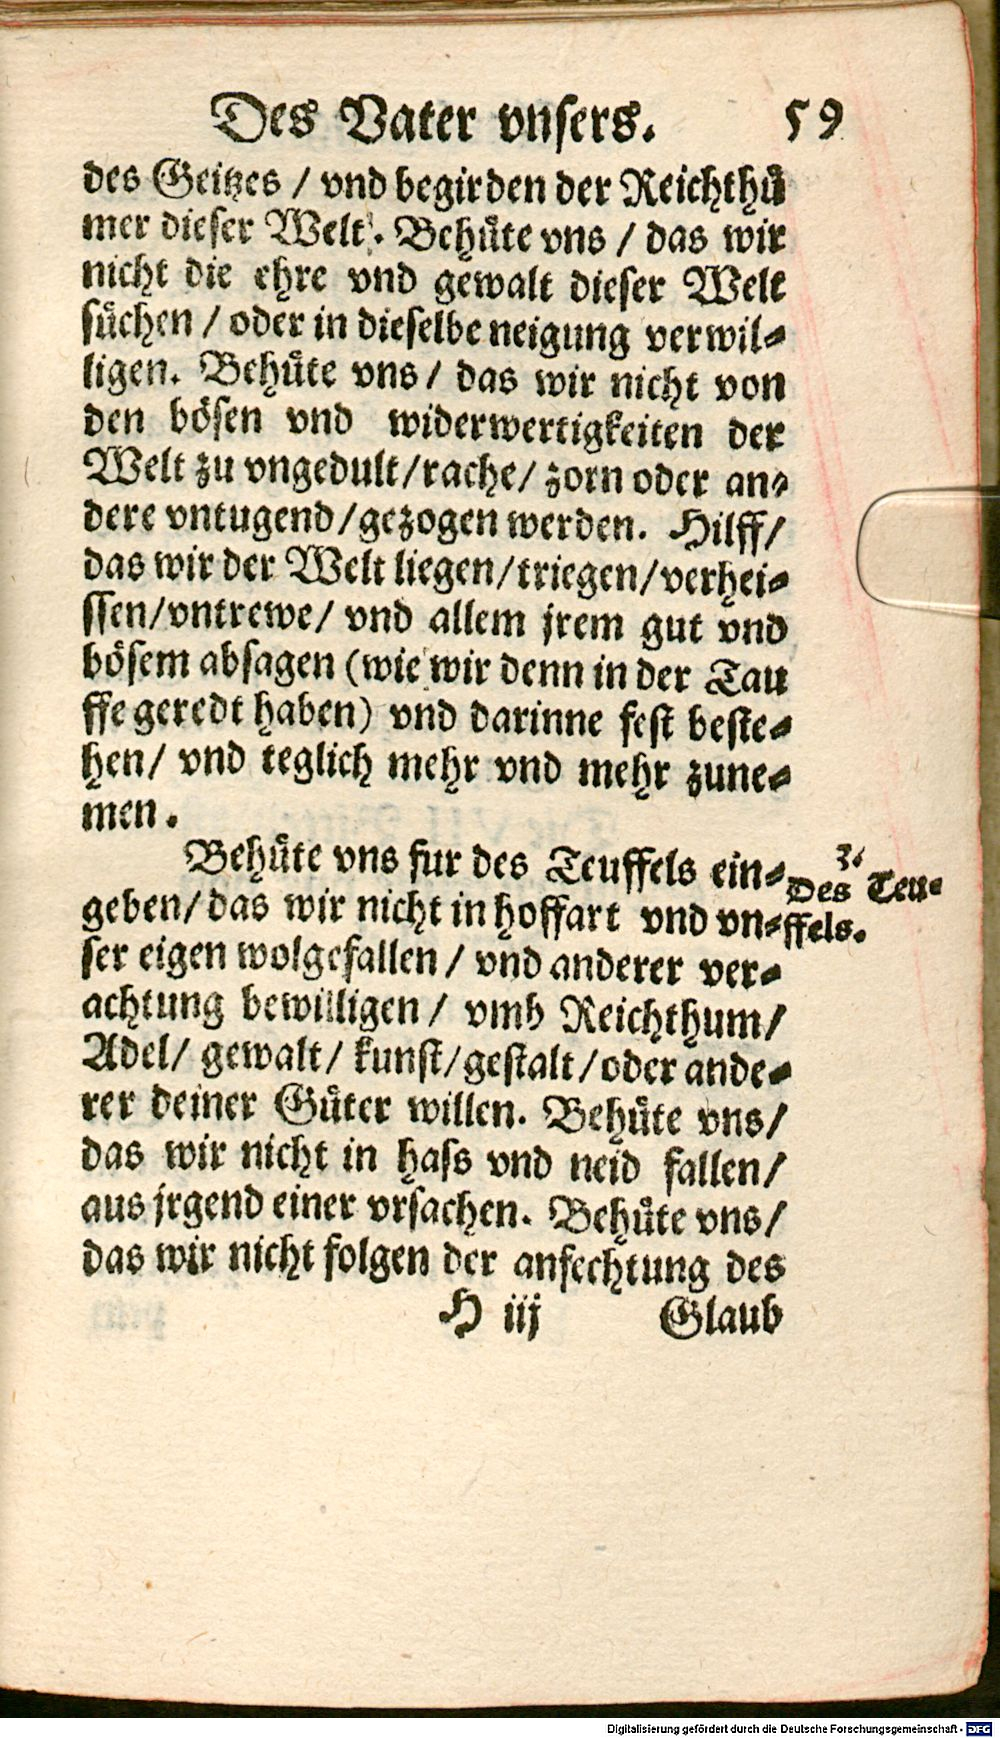 Des Vater vnsers. 59
des Geitzes / vnd begirden der Reichthuͤ
mer dieser Welt. Behuͤte vns / das wir
nicht die ehre vnd gewalt dieser Welt
suͤchen / oder in dieselbe neigung verwil⸗
ligen. Behuͤte vns / das wir nicht von
den boͤsen vnd widerwertigkeiten der
Welt zu vngedult / rache / zorn oder an⸗
dere vntugend / gezogen werden. Hilff /
das wir der Welt liegen / triegen / verhei⸗
ssen / vntrewe / vnd allem jrem gut vnd
boͤsem absagen (wie wir denn in der Tau
ffe geredt haben) vnd darinne fest beste⸗
hen / vnd teglich mehr vnd mehr zune⸗
men.
Behuͤte vns fur des Teuffels ein⸗
geben / das wir nicht in hoffart vnd vn⸗
ser eigen wolgefallen / vnd anderer ver⸗
achtung bewilligen / vmb Reichthum /
Adel / gewalt / kunst / gestalt / oder ande⸗
rer deiner Guͤter willen. Behuͤte vns /
das wir nicht in hass vnd neid fallen /
aus jrgend einer vrsachen. Behuͤte vns /
das wir nicht folgen der anfechtung des
H iij Glaub
3.
Des Teu⸗
ffels.
Digitalisierung gefördert durch die Deutsche Forschungsgemeinschaft - DFG